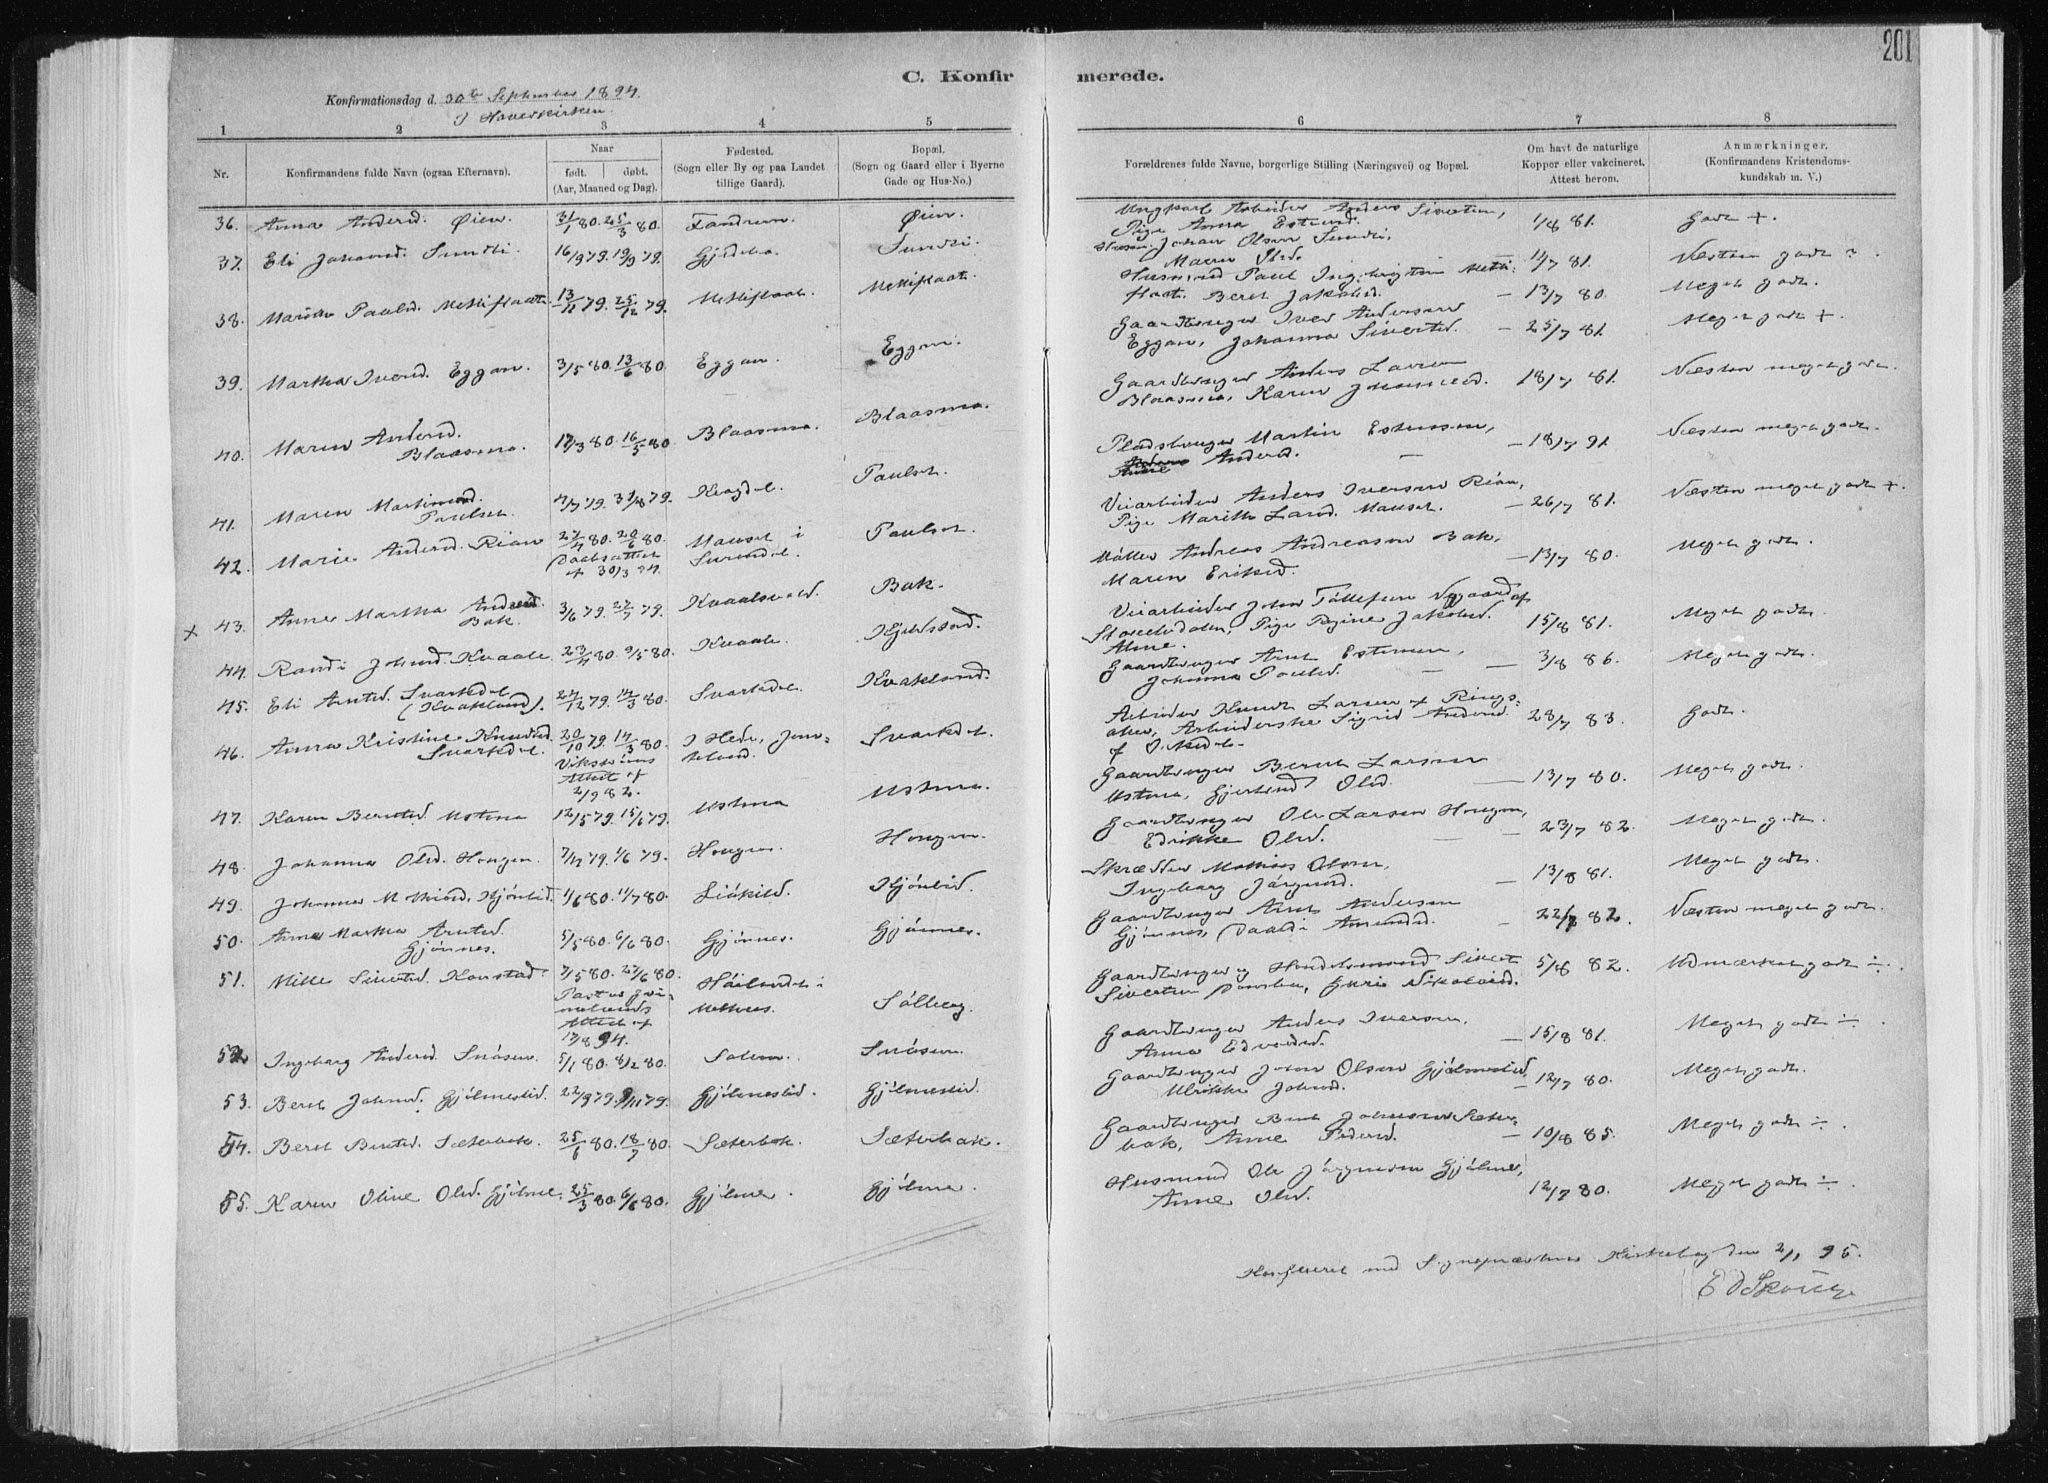 201
C. Konfirmerede.
Konfirmationsdag d. 30te September 1894.
I Hovedkirken
1 2 3 4 5 6 7 8
Nr.
Konfirmandens fulde Navn (ogsaa Efternavn).
Naar
født. døbt.
(Aar, Maaned og Dag).
Fødested.
(Sogn eller By og paa Landet
tillige Gaard).
Bopæl.
(Sogn og Gaard eller i Byerne
Gade og Hus-No.)
Forældrenes fulde Navne, borgerlige Stilling (Næringsvei) og Bopæl.
Om havt de naturlige
Kopper eller vakcineret.
Attest herom.
Anmærkninger.
(Konfirmandens Kristendoms-
kundskab m. V.)
36. Anna Andersd. Øien. 31/1 80. 25/3 80. Øien. Anders Sivertsen, Pige Anna Estensd. 1/8 81. godt +.
37. Eli Johansd. Sundli 16/9 79. 19/9 79. Sundli. Johan Olsen Sundli, Maren Olsd. 11/7 81. Næsten godt
38. Marith Paulsd. Metliflaat. 13/11 79. 25/12 79. Metliflaat. Metliflaat. Husmand Paul Ingebrigtsen Metliflaat. Beret Jakobsd. — 13/7 80. Meget godt.
39. Martha Iversd. Eggan. 3/5 80. 13/6 80. Eggan. Eggan. Gaardbruger Iver Andersen Eggan, Johanna Sivertsd. — 25/7 81. Meget godt +.
40. Maren Andersd. Blaasmo. 17/3 80. 16/5 80. Blaasmo. Blaasmo. Gaardbruger Anders Larsen Blaasmo, Karen Johannesd. 18/7 81. Næsten meget godt.
41. Maren Martinusd. Paulset. 4/7 79. 31/8 79. Krogdal. Paulset. Pladsbruger Martin Estensen, Andersd. — 18/7 91. Næsten meget godt.
42. Marie Andersd. Rian 27/4 80. 20/6 80. (Daabsattest af 30/3 94. Mauset i Surendal. Paulset. Veiarbeider Anders Iversen Rian, Pige Marith Larsd. Mauset. — 26/7 81. Næsten meget godt +.
x 43. Anne Martha Andreasd. Bak. 3/6 79. 27/7 79. Kvaalsvold. Bak. Møller Andreas Andreasen Bak, Maren Eriksd. — 13/7 80. Meget godt.
44. Randi Johnsd. Kvaale. 23/4 80. 9/5 80. Kvaale. Kjeldstad. Veiarbeider John Tøllefsen Nygaard af Storelvdalen, Pige Regine Jakobsd. Alme. 15/8 81. Meget godt.
45. Eli Arntsd. Svarkdal (Kvakland). 27/12 79. 14/3 80. Svarkdal. Kvakland. Gaardbruger Arnt Estensen, Johanna Paulsd. — 3/8 86. Meget godt.
46. Anna Kristine Knudsd. Svarkdal. 20/10 79. 14/3 80. Attest af 2/9 82. I Hede, Svarkdal. Arbeider Knudt Larsen Sigrid Andersd. 28/7 83. godt.
47. Karen Berntsd. Ustma 12/5 79. 15/6 79. Ustma Ustma. Gaardbruger Bernt Larsen Ustma, Gjertrud Olsd. — 13/7 80. Meget godt.
48. Johanna Olsd. Hongen. 7/12 79. 1/6 79. Hongen. Hongen. Gaardbruger Ole Larsen Hongen, Edrikke Olsd. — 23/7 82. Meget godt.
49. Johanna Mathiasd. Kjønlid. 1/6 80. 11/7 80. Liøkild. Kjønlid. Skrædder Mathias Olsen, Ingeborg Jørgensd. — 13/8 81. Meget godt.
50. Anna Martha Arntsd. Gjønnes. 5/5 80. 6/6 80. Gjønnes. Gjønnes. Gaardbruger Arnt Andersen Gjønnes, Amundsd. — 22/7 82. Næsten meget godt.
51. Mille Sivertsd. Konstad. 7/5 80. 27/6 80. Attest af 17/8 94. Sølberg. Gaardbruger og Handelsmand Sivert Sivertsen Guri Nikolaisd. 5/8 82. Udmærket godt ÷.
52. Ingeborg Andersd. Snøsen. 5/1 80. 8/2 80. Solem. Snøsen. Gaardbruger Anders Iversen, Anna Edvardsd. — 15/8 81. Meget godt ÷.
53. Beret Johnsd. Gjølmeslid. 22/9 79. 9/11 79. Gjølmeslid. Gjølmeslid. Gaardbruger John Olsen Gjølmeslid, Ulrikke Johnsd. — 12/7 80. Meget godt.
54. Beret Berntsd. Sæterbak. 25/6 80. 18/7 80. Sæterbak. Sæterbak. Gaardbruger Bernt Johnsen Sæterbak, Anne Pedersd. — 10/8 85. Meget godt ÷.
55. Karen Oline Olsd. Gjølme. 25/3 80. 6/6 80. Gjølme. Gjølme. Husmand Ole Jørgensen Gjølme, Anne Olsd. 12/7 80. Meget godt ÷.
Konfereret med Sognepræstens Kirkebog den 2/1 95.